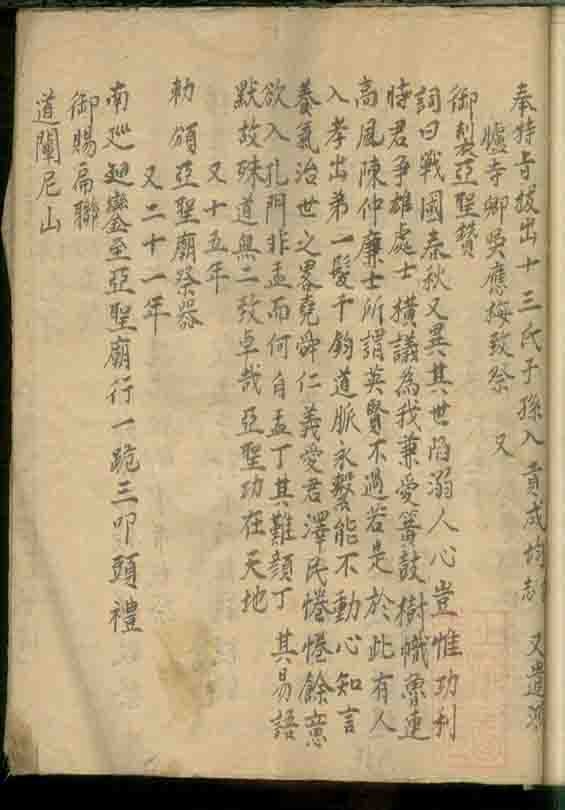 奉特旨拔出十三氏子孫入貢成均 又遣鴻
臚寺卿吳應梅致祭 又
御製亞聖贊
詞曰戰國春秋又異其世陷溺人心豈惟功利
時君爭雄處士橫議為我兼愛簧鼓樹幟魯連
高風陳仲廉士所謂英賢不過若是於此有人
入孝出弟一髮千鈞道脈永繫能不動心知言
養氣治世之畧堯舜仁義愛君澤民惓惓餘意
欲入孔門非孟而何自孟丁其難顏丁其易語
默故殊道無二致卓哉亞聖功在天地
又十五年
勅頒亞聖廟祭器
又二十一年
南巡廻鑾至亞聖廟行一跪三叩頭禮
御賜扁聯
道闡尼山